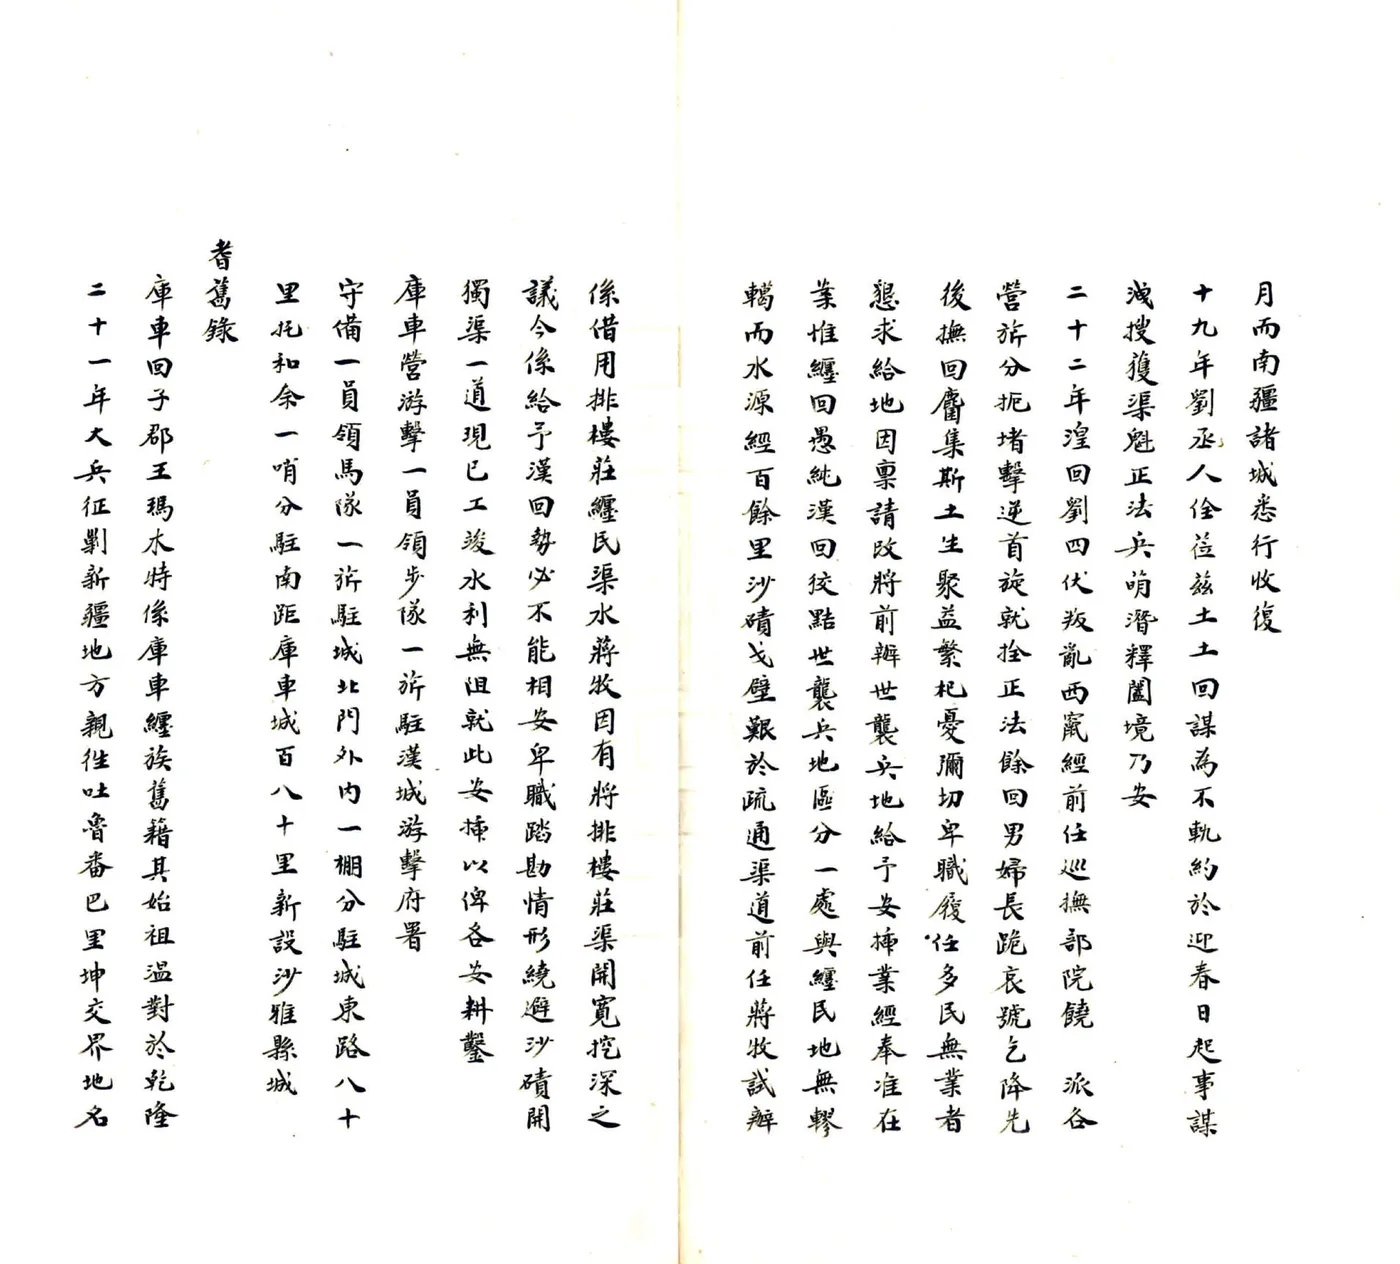 月而南疆諸城悉行收復
十九年劉丞人佺莅茲土土回謀為不軌約於迎春日起事謀
洩搜獲渠魁正法兵萌潛釋闔境乃安
二十二年湟回劉四伏叛亂西竄經前任巡撫部院饒 派各
營旂分扼堵擊逆首旋就拴正法餘回男婦長跪哀號乞降先
後撫回麕集斯土生聚益繁杞憂彌切卑職履任多民無業者
懇求給地因禀請改將前辦世襲兵地給予安揷業經奉准在
業惟纏回愚純漢回狡黠世襲兵地區分一處與纏民地無轇
轕而水源經百餘里沙磧戈壁艱於疏通渠道前任蔣牧試辦
係借用排樓莊纏民渠水蔣牧因有將排樓莊渠開寬挖深之
議今係給予漢回勢必不能相安卑職踏勘情形繞避沙磧開
獨渠一道現已工竣水利無阻就此安揷以俾各安耕鑿
庫車營游擊一員領步隊一旂駐漢城游擊府署
守備一員領馬隊一旂駐城北門外內一棚分駐城東路八十
里托和奈一哨分駐南距庫車城百八十里新設沙雅縣城
耆舊錄
庫車回子郡王瑪木特係庫車纏族舊籍其始祖温對於乾隆
二十一年大兵征剿新疆地方親徃吐魯番巴里坤交界地名